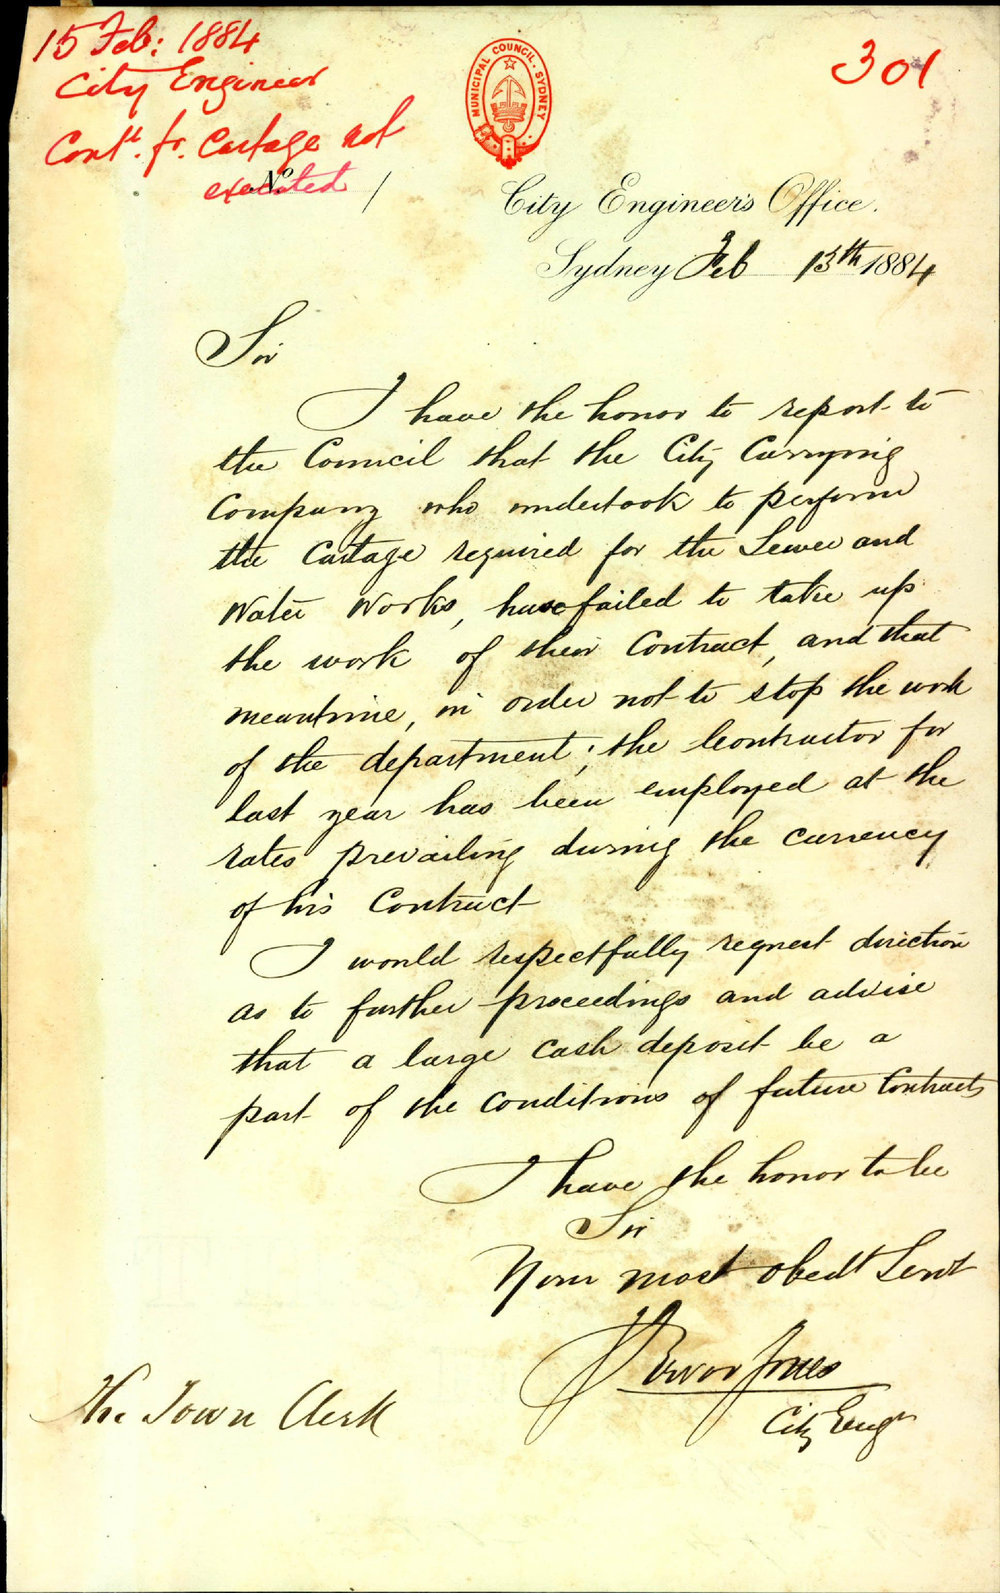 15 Feb: 1884
City Engineer
Contt. fr. Cartage not
executed
301
MUNICIPAL COUNCIL. SYDNEY
No
City Engineer's Office.
Sydney Feb 13th 1884
Sir
I have the honor to report to
the Council that the City Carrying
Company who undertook to perform
the Cartage required for the Sewer and
Water Works, have failed to take up
the work of their Contract, and that
meantime, in order not to stop the work
of the department; the Contractor for
last year has been employed at the
rates prevailing during the currency
of his Contract
I would respectfully request direction
as to further proceedings and advise
that a large cash deposit be a
part of the conditions of future Contracts
I have the honor to be
Sir
Your most obedt Servt
Trevor Jones
City Engr
The Town Clerk